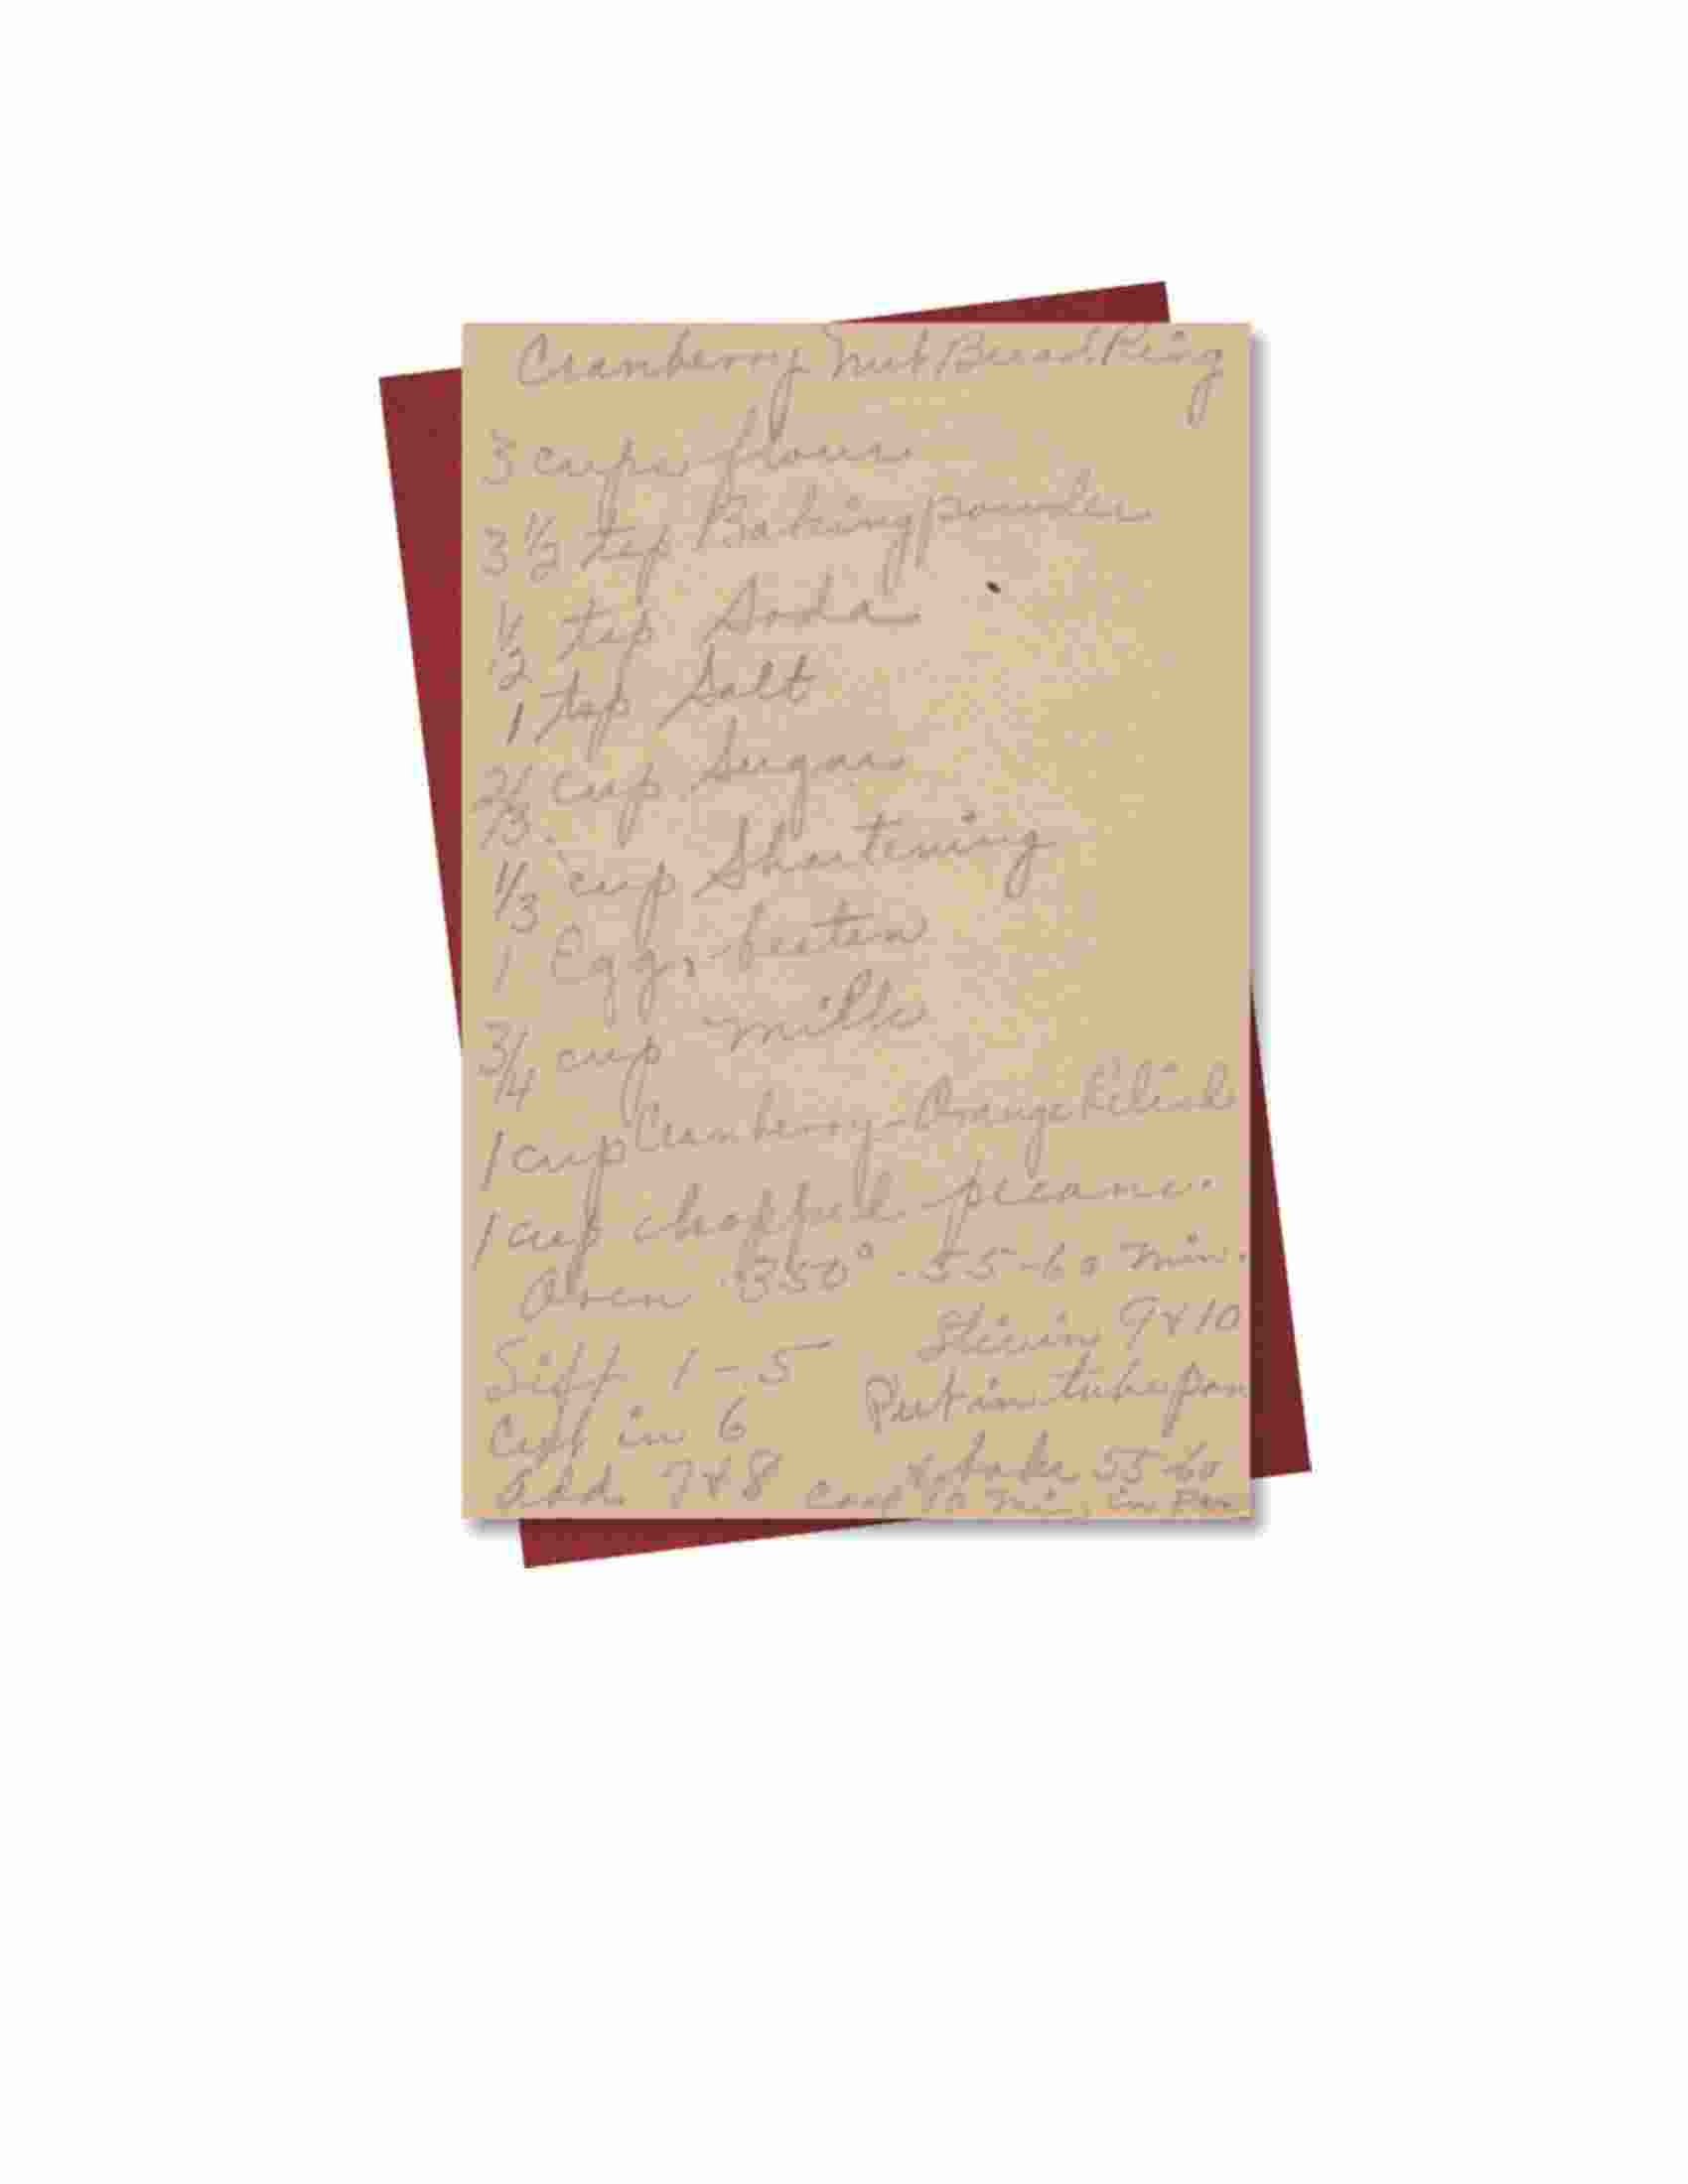 Cranberry Nut Bread Ring
3 cups flour
3 1/2 tsp Baking powder
1/2 tsp Soda
1 tsp Salt
2/3 cup Sugar
1/3 cup Shortening
1 Egg, beaten
3/4 cup milk
1 cup Cranberry-Orange Relish
1 cup chopped pecans.
Oven 350° 55-60 min.
Sift 1-5
Cut in 6
Add 7 & 8
Stir in 9 & 10
Put in tube pan
& bake 55-60
Cool 10 mi. in Pan